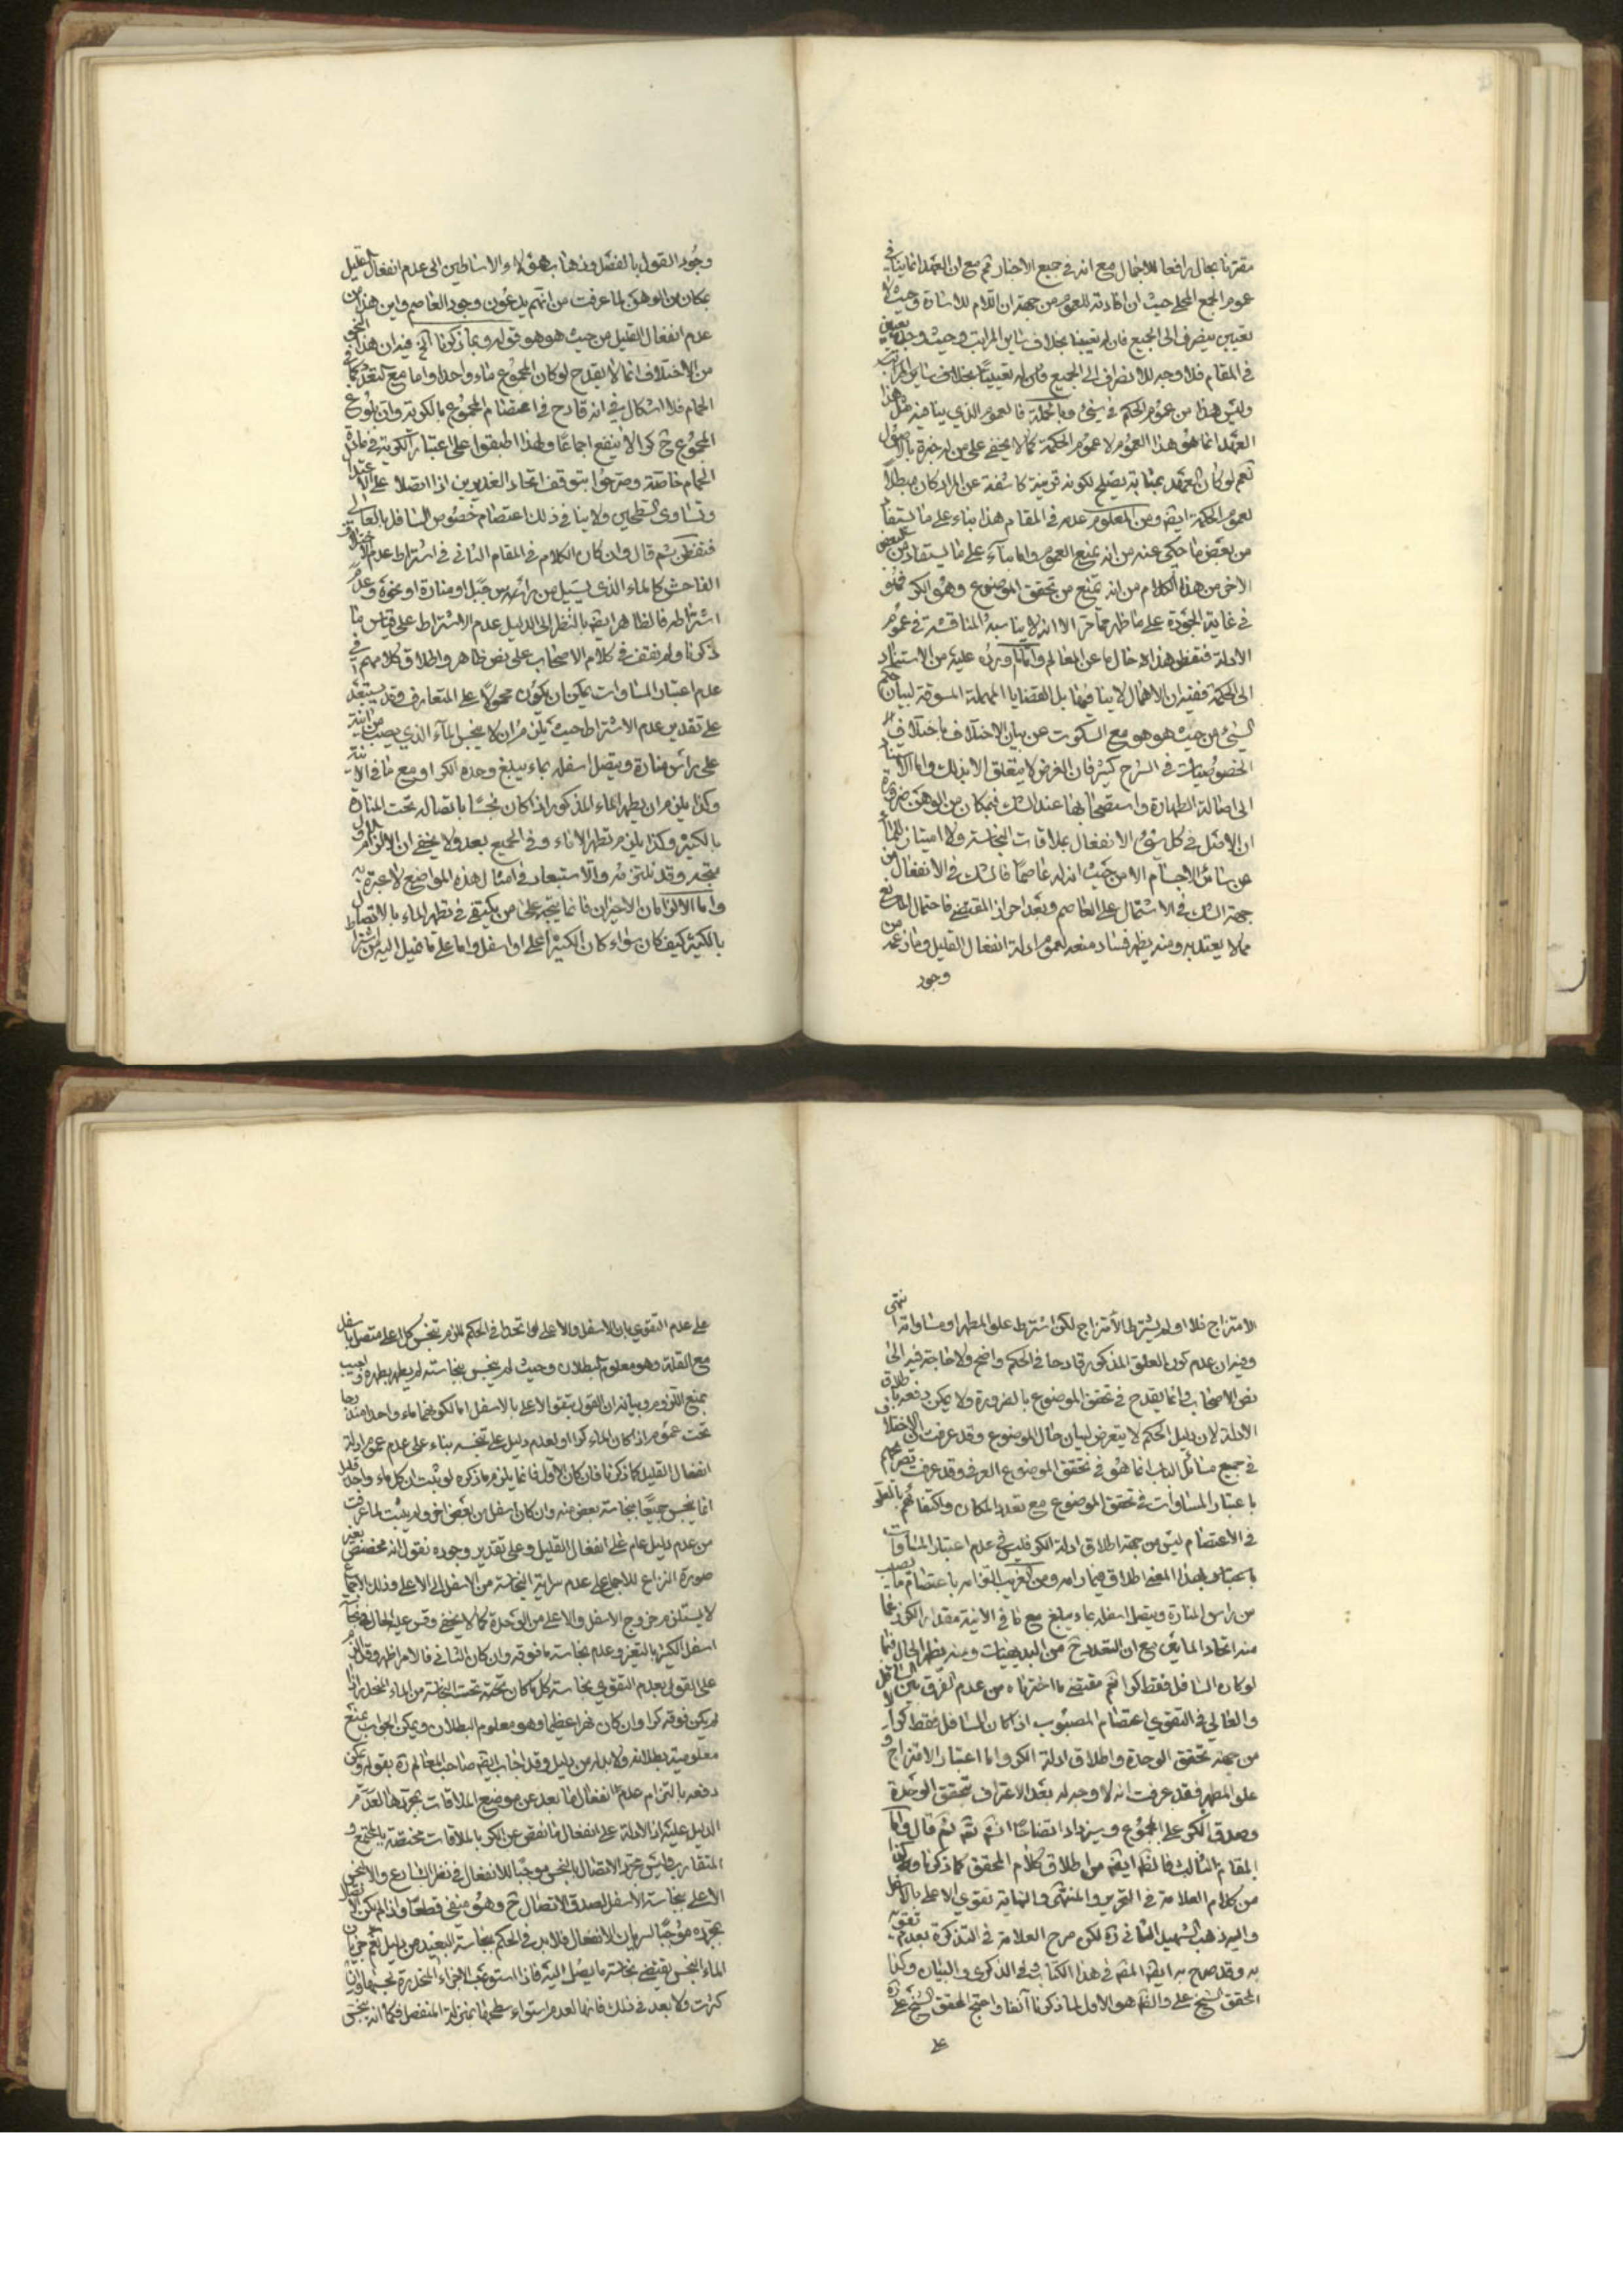 مقترنا بحال رافعا للاجمال مع انه في جميع الاخبار ثم مع ان العهد انما ينافي
عموم الجمع المحلى حيث ان افادته للعموم من جهة ان اللام للاشارة وحيث لا
تعيين ينصرف الى الجميع فان له تعينا بخلاف ساير المراتب وحيث وجد تعيين
في المقام فلا وجه للانصراف الى الجميع
وليس هذا من عموم الحكمة في شيء وبالجملة فالعموم الذي ينافيه مثل هذا
العهد انما هو هذا العموم لا عموم الحكمة كما لا يخفى على من له خبرة بالاصول
نعم لو كان العهد بمثابة يصلح لكونه قرينة كاشفة عن المراد كان مبطلا
لعموم الحكمة ايضا ومن المعلوم عدمه في المقام هذا بناء على ما يستفاد
من بعض ما حكي عنه من انه يمنع العموم واما بناء على ما يستفاد من البعض
الاخر من هذا الكلام من انه يمنع من تحقق الموضوع وهو الكر فهو
في غاية الجودة على ما ظهر مما مر الا انه لا يناسبه المناقشة في عموم
الادلة فتفطن هذا حال ما عن المعالم واما ما ويرد عليه من الاستناد
الى الحكمة ففيه ان الاهمال لا ينافيها بل القضايا المهملة المسوقة لبيان حكم
الشيء من حيث هو هو مع السكوت عن بيان الاختلاف باختلاف
الخصوصيات في الشرع كثير فان الغرض لا يتعلق الا بذلك واما الاستناد
الى اصالة الطهارة واستصحابها عند الشك فبمكان من الوهن ضرورة
ان الاصل في كل شيء الانفعال بملاقات النجاسة ولا امتياز للماء
عن سائر الاجسام الا من حيث ان له عاصما فالشك في الانفعال من
جهة الشك في الاشتمال على العاصم وبعد احراز المقتضي فاحتمال المانع
مما لا يعتد به ومنه يظهر فساد منعه لعموم ادلة انفعال القليل وما زعمه من
وجود
وجود القول بالفصل وذهاب هؤلاء الاساطين الى عدم انفعال القليل
بمكان من الوهن لما عرفت من انهم يدعون وجود العاصم واين هذا من
عدم انفعال القليل من حيث هو هو قوله وبما ذكرنا الخ فيه ان هذا النحو
من الاختلاف انما لا يقدح لو كان المجموع ماء واحدا واما مع التعدد كما في
الحمام فلا اشكال في انه قادح في اعتصام المجموع بالكرية وان بلوغ
المجموع ح كرا لا ينفع اجماعا ولهذا اطبقوا على اعتبار الكرية في مادة
الحمام خاصة وصرحوا بتوقف اتحاد الغديرين اذا اتصلا على الاعتدال
وتساوى السطحين ولا ينافي ذلك اعتصام خصوص السافل بالعالى
فتفطن ثم قال وان كان الكلام في المقام الثاني في اشتراط عدم الاختلاف
الفاحش كالماء الذي يسيل من رأس جبل او منارة او نحوه وعدم
اشتراطه فالظاهر ايضا بالنظر الى الدليل عدم الاشتراط على قياس ما
ذكرنا ولم نقف في كلام الاصحاب على نص ظاهر واطلاق كلامهم في
عدم اعتبار المساوات يمكن ان يكون محمولا على المتعارف وقد يستبعد
على تقدير عدم الاشتراط حيث يلزم ان لا ينجس الماء الذي يصب من انية
على رأس منارة ويتصل اسفله بماء يبلغ وحده الكر او مع ما في الانية
وكذا يلزم ان يطهر الماء المذكور اذا كان نجسا باتصاله تحت المنارة
بالكثير وكذا يلزم تطهر الاناء وفي الجميع بعد ولا يخفى ان الالزام الاول
متجه وقد نلتزمه والاستبعاد في امثال هذه المواضع لا عبرة به
واما الالزامان الاخيران فانما يتجه على من يكتفي في تطهر الماء بالاتصال
بالكثير كيف كان سواء كان الكثير اعلى او اسفل واما على ما نميل اليه من اشتراط
الامتزاج فلا او لم يشترط الامتزاج لكن اشترط علو المطهر او مساواته انتهى
وفيه ان عدم كون العلو المذكور قادحا في الحكم واضح ولا حاجة فيه الى
نص الاصحاب وانما يقدح في تحقق الموضوع بالضرورة ولا يمكن دفعه باطلاق
الادلة لان دليل الحكم لا يتعرض لبيان حال الموضوع وقد عرفت ان الاختلاف
في جميع مسائل الباب انما هو في تحقق الموضوع العرفي وقد عرفت تصريحهم
باعتبار المساوات في تحقق الموضوع مع تعدد المكان واكتفائهم بالعلو
في الاعتصام ليس من جهة اطلاق ادلة الكر فليس في عدم اعتبار المساوات
بهذا المعنى اطلاق فيما رامه ومن الغريب التزامه باعتصام ما يصب
من راس المنارة ويتصل اسفله بماء يبلغ مع ما في الانية مقدار الكر زعما
منه اتحاد المائين مع ان التعدد ح من البديهيات ومنه يظهر الحال فيما
لو كان السافل فقط كرا ثم مقتضى ما اختاره من عدم الفرق بين السافل
والعالي في التقوي اعتصام المصبوب اذا كان السافل فقط كرا
من جهة تحقق الوحدة واطلاق ادلة الكر واما اعتبار الامتزاج و
علو المطهر فقد عرفت انه لا وجه له بعد الاعتراف بتحقق الوحدة
وصدق الكر على المجموع وسيزداد اتضاحا انش تعالى ثم قال واما
المقام الثالث فالظاهر ايضا من اطلاق كلام المحقق كما ذكرنا وكذا
من كلام العلامة في التحرير والمنتهى والنهاية تقوي الاعلى بالاسفل
واليه ذهب الشهيد الثاني ره لكن صرح العلامة في التذكرة بعدم تقويه
به وقد صرح به ايضا المص في هذا الكتاب وفي الذكرى والبيان وكذا
المحقق الشيخ علي والظاهر هو الاول لما ذكرنا آنفا واحتج المحقق الشيخ علي ره
على
على عدم التقوي بان الاسفل والاعلى لو اتحدا في الحكم للزم تنجس كل اعلى متصل باسفل
مع القلة وهو معلوم البطلان وحيث لم ينجس بنجاسته لم يطهر بطهره واجيب
بمنع اللزوم وبيانه ان القول بتقوي الاعلى بالاسفل اما لكونهما ماء واحدا مندرجا
تحت عموم اذا كان الماء كرا او لعدم دليل على تنجسه بناء على عدم عموم ادلة
انفعال القليل كما ذكرنا فان كان الاول فانما يلزم ما ذكره لو ثبت ان كل ماء واحد قليل
انما ينجس جميعا بنجاسة بعض منه وان كان اسفل من بعض اخر ولم يثبت لما عرفت
من عدم دليل عام على انفعال القليل وعلى تقدير وجوده نقول انه مخصص بغير
صورة النزاع للاجماع على عدم سراية النجاسة من الاسفل الى الاعلى وذلك الاجماع
لا يستلزم خروج الاسفل والاعلى من الوحدة كما لا يخفى وقس عليه الحال في نجاسة
اسفل الكثير بالتغير وعدم نجاسة ما فوقه وان كان الثاني فالامر اظهر وقد الزم
على القول بعدم التقوي نجاسة كل ما كان تحت النجاسة من الماء المنحدر اذا
لم يكن فوقه كرا وان كان نهرا عظيما وهو معلوم البطلان ويمكن الجواب بمنع
معلومية بطلانه ولا بد له من دليل وقد اجاب ايضا صاحب المعالم ره بقوله ويمكن
دفعه بالتزام عدم انفعال ما بعد عن موضع الملاقات بمجردها لعدم
الدليل عليه اذ الادلة على انفعال ما نقص عن الكر بالملاقات مختصة بالمجتمع و
المتقارب وليس مجرد الاتصال بالنجس موجبا للانفعال في نظر الشارع والا لنجس
الاعلى بنجاسة الاسفل لصدق الاتصال ح وهو منفي قطعا واذا لم يكن الاتصال
بمجرده موجبا لسريان الانفعال فلا بد في الحكم بنجاسة البعيد من دليل نعم جريان
الماء النجس يقتضي نجاسة ما يصل اليه فاذا استوعب الاجزاء المنحدرة نجسها وان
كثرت ولا بعد في ذلك فانها لعدم استواء سطحها بمنزلة المنفصل فكما انه ينجس